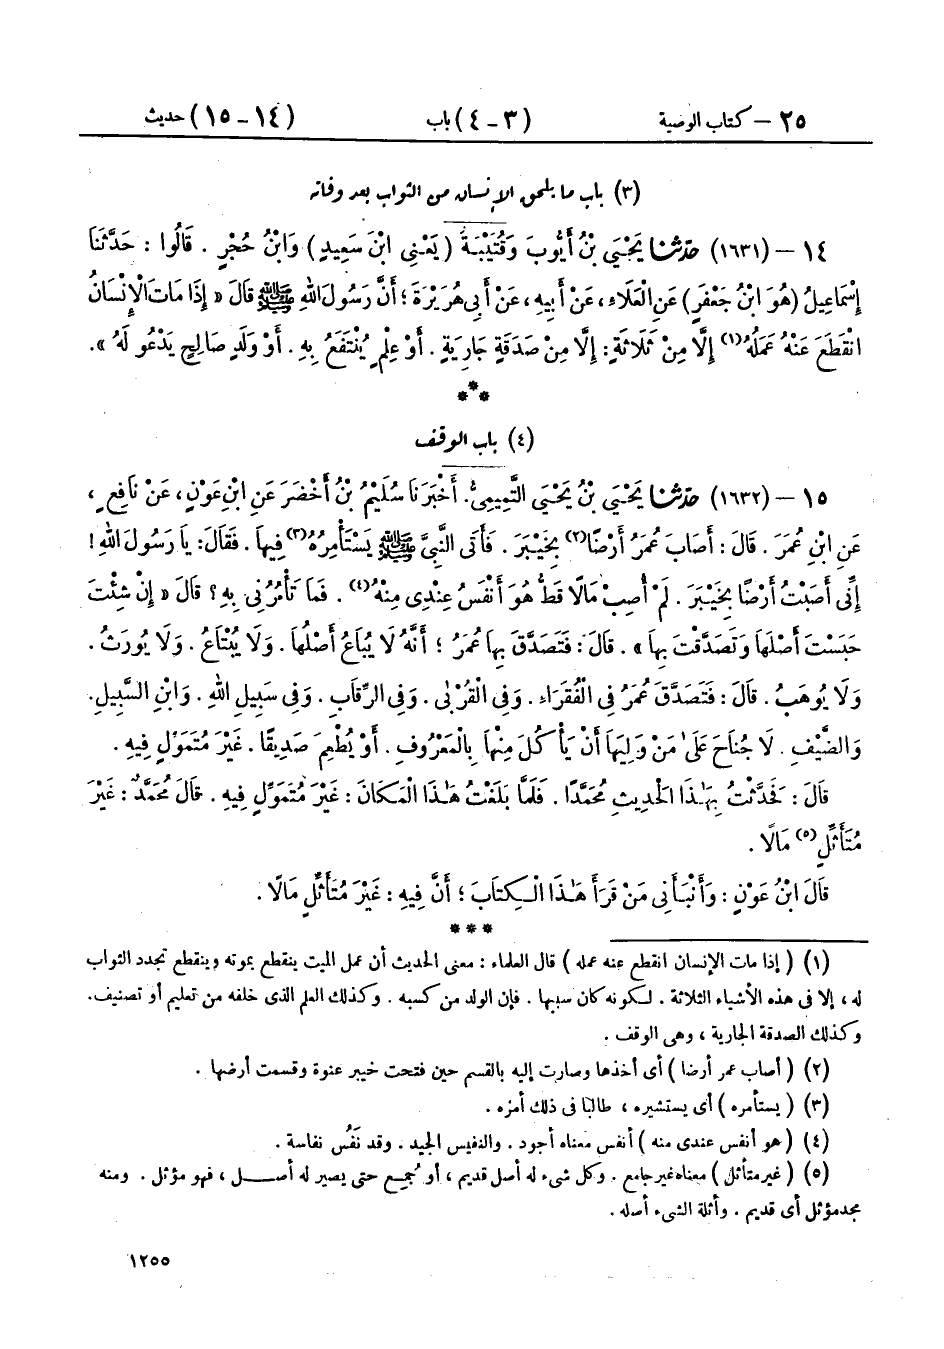 ٢٥ – كتاب الوصية (٣ – ٤) باب (١٤ – ١٥) حديث
(٣) باب ما يلحق الإنسان من الثواب بعد وفاته
١٤ – (١٦٣١) حَدَّثَنَا يَحْيَى بْنُ أَيُّوبَ وَقُتَيْبَةُ (يَعْنِى ابْنَ سَعِيدٍ) وَابْنُ حُجْرٍ . قَالُوا : حَدَّثَنَا
إِسْمَاعِيلُ (هُوَ ابْنُ جَعْفَرٍ) عَنِ الْعَلَاءِ، عَنْ أَبِيهِ، عَنْ أَبِى هُرَيْرَةَ ؛ أَنَّ رَسُولَ اللهِ ﷺ قَالَ « إِذَا مَاتَ الْإِنْسَانُ
انْقَطَعَ عَنْهُ عَمَلُهُ(١) إِلَّا مِنْ ثَلَاثَةٍ: إِلَّا مِنْ صَدَقَةٍ جَارِيَةٍ . أَوْ عِلْمٍ يُنْتَفَعُ بِهِ. أَوْ وَلَدٍ صَالِحٍ يَدْعُو لَهُ ».
***
(٤) باب الوقف
١٥ – (١٦٣٢) حَدَّثَنَا يَحْيَى بْنُ يَحْيَى التَّمِيمِىُّ. أَخْبَرَنَا سُلَيْمُ بْنُ أَخْضَرَ عَنِ ابْنِ عَوْنٍ، عَنْ نَافِعٍ ،
عَنِ ابْنِ عُمَرَ . قَالَ : أَصَابَ عُمَرُ أَرْضًا(٢) بِخَيْبَرَ . فَأَتَى النَّبِىَّ ﷺ يَسْتَأْمِرُهُ(٣) فِيهَا. فَقَالَ: يَا رَسُولَ اللهِ !
إِنِّى أَصَبْتُ أَرْضًا بِخَيْبَرَ . لَمْ أُصِبْ مَالًا قَطُّ هُوَ أَنْفَسُ عِنْدِى مِنْهُ(٤) . فَمَا تَأْمُرُنِى بِهِ؟ قَالَ « إِنْ شِئْتَ
حَبَسْتَ أَصْلَهَا وَتَصَدَّقْتَ بِهَا » . قَالَ: فَتَصَدَّقَ بِهَا عُمَرُ ؛ أَنَّهُ لَا يُبَاعُ أَصْلُهَا. وَلَا يُبْتَاعُ . وَلَا يُورَثُ .
وَلَا يُوهَبُ . قَالَ : فَتَصَدَّقَ عُمَرُ فِى الْفُقَرَاءِ . وَفِى الْقُرْبَى . وَفِى الرِّقَابِ . وَفِى سَبِيلِ اللهِ . وَابْنِ السَّبِيلِ.
وَالضَّيْفِ . لَا جُنَاحَ عَلَى مَنْ وَلِيَهَا أَنْ يَأْكُلَ مِنْهَا بِالْمَعْرُوفِ. أَوْ يُطْعِمَ صَدِيقًا . غَيْرَ مُتَمَوِّلٍ فِيهِ .
قَالَ : فَحَدَّثْتُ بِهَذَا الْحَدِيثِ مُحَمَّدًا . فَلَمَّا بَلَغْتُ هَذَا الْمَكَانَ : غَيْرَ مُتَمَوِّلٍ فِيهِ . قَالَ مُحَمَّدٌ : غَيْرَ
مُتَأَثِّلٍ(٥) مَالًا .
قَالَ ابْنُ عَوْنٍ : وَأَنْبَأَنِى مَنْ قَرَأَ هَذَا الْكِتَابَ ؛ أَنَّ فِيهِ : غَيْرَ مُتَأَثِّلٍ مَالًا .
***
(١) ( إذا مات الإنسان انقطع عنه عمله ) قال العلماء : معنى الحديث أن عمل الميت ينقطع بموته وينقطع تجدد الثواب
له ، إلا فى هذه الأشياء الثلاثة . لكونه كان سببها . فإن الولد من كسبه . وكذلك العلم الذى خلفه من تعليم أو تصنيف.
وكذلك الصدقة الجارية ، وهى الوقف .
(٢) ( أصاب عمر أرضا ) أى أخذها وصارت إليه بالقسم حين فتحت خيبر عنوة وقسمت أرضها .
(٣) ( يستأمره ) أى يستشيره ، طالبا فى ذلك أمره .
(٤) ( هو أنفس عندى منه ) أنفس معناه أجود . والنفيس الجيد . وقد نَفُس نفاسة .
(٥) ( غير متأثل ) معناه غير جامع . وكل شىء له أصل قديم ، أو جُمع حتى يصير له أصل ، فهو مؤثل . ومنه
مجد مؤثل أى قديم . وأثلة الشىء أصله .
١٢٥٥